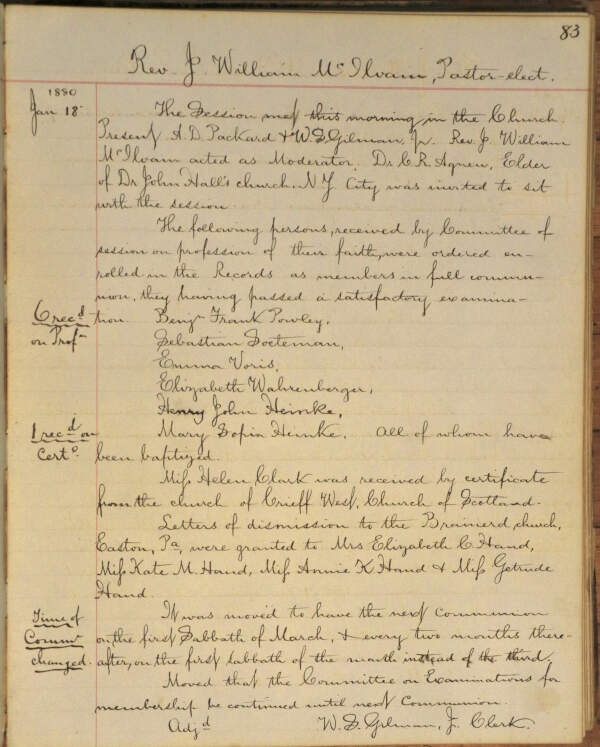 83
Rev. J. William McIlvain, Pastor-elect.
1880
Jan 18
The Session met this morning in the Church.
Present A. D. Packard & W. S. Gilman, Jr. Rev. J. William
McIlvain acted as Moderator. Dr. C. R. Agnew, Elder
of Dr John Hall's church, N.Y. City was invited to sit
with the session.
The following persons, received by Committee of
session on profession of their faith, were ordered en-
rolled in the Records as members in full commu-
nion, they having passed a satisfactory examina-
6 recd
tion. Benjn Frank Powley,
on Profn
Sebastian Soeteman,
Emma Voris,
Elizabeth Wahrenberger,
Henry John Heinke,
1 recd on
Mary Sofia Heinke. All of whom have
Certe.
been baptized.
Miss Helen Clark was received by certificate
from the church of Crieff West, Church of Scotland.
Letters of dismission to the Brainerd church,
Easton, Pa, were granted to Mrs Elizabeth C Hand,
Miss Kate M. Hand, Miss Annie K Hand & Miss Getrude
Hand.
Time of
It was moved to have the next Communion
Commn
on the first Sabbath of March, & every two months there-
changed.
after, on the first sabbath of the month instead of the third.
Moved that the Committee on Examinations for
membership be continued until next Communion.
Adjd
W. S. Gilman, Jr. Clerk.